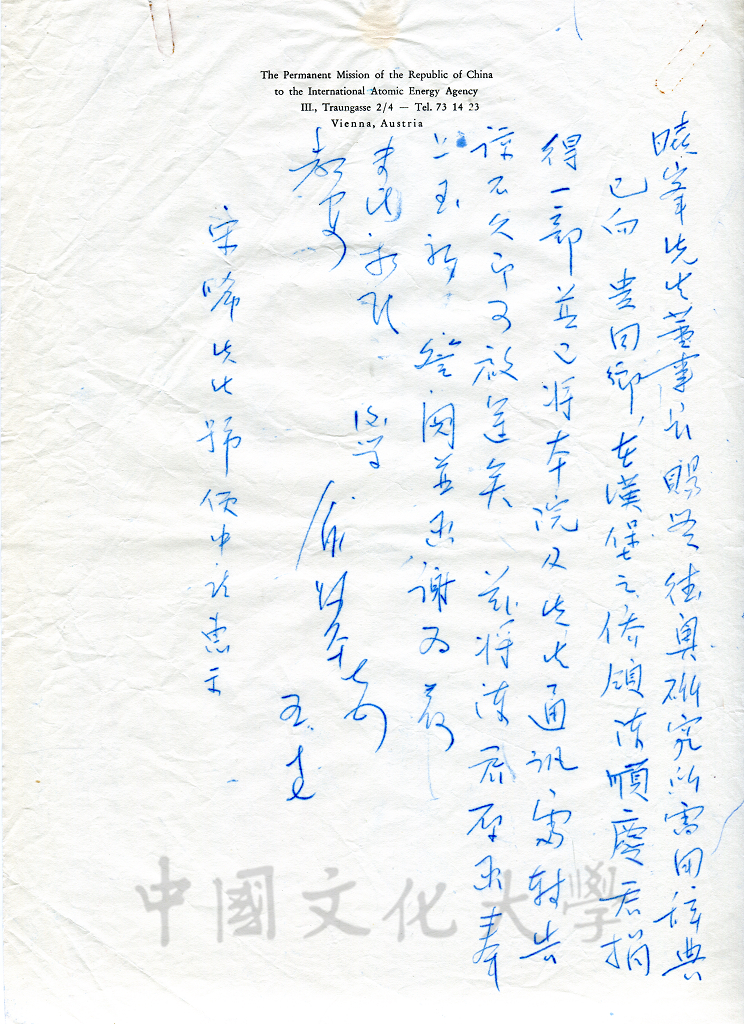 The Permanent Mission of the Republic of China
to the International Atomic Energy Agency
III., Traungasse 2/4 — Tel. 73 14 23
Vienna, Austria
曉峯先生董事長賜鑒德奧研究所需用辭典
已向貴同鄉在漢堡之僑領陳順慶君捐
得一部並已將本院及先生通訊處轉告
諒不久即可啟運矣茲將陳君原函奉
上至祈詧閱並函謝為荷
專此敬頌
教安
後學
宋晞先生號便中請惠示
中國文化大學